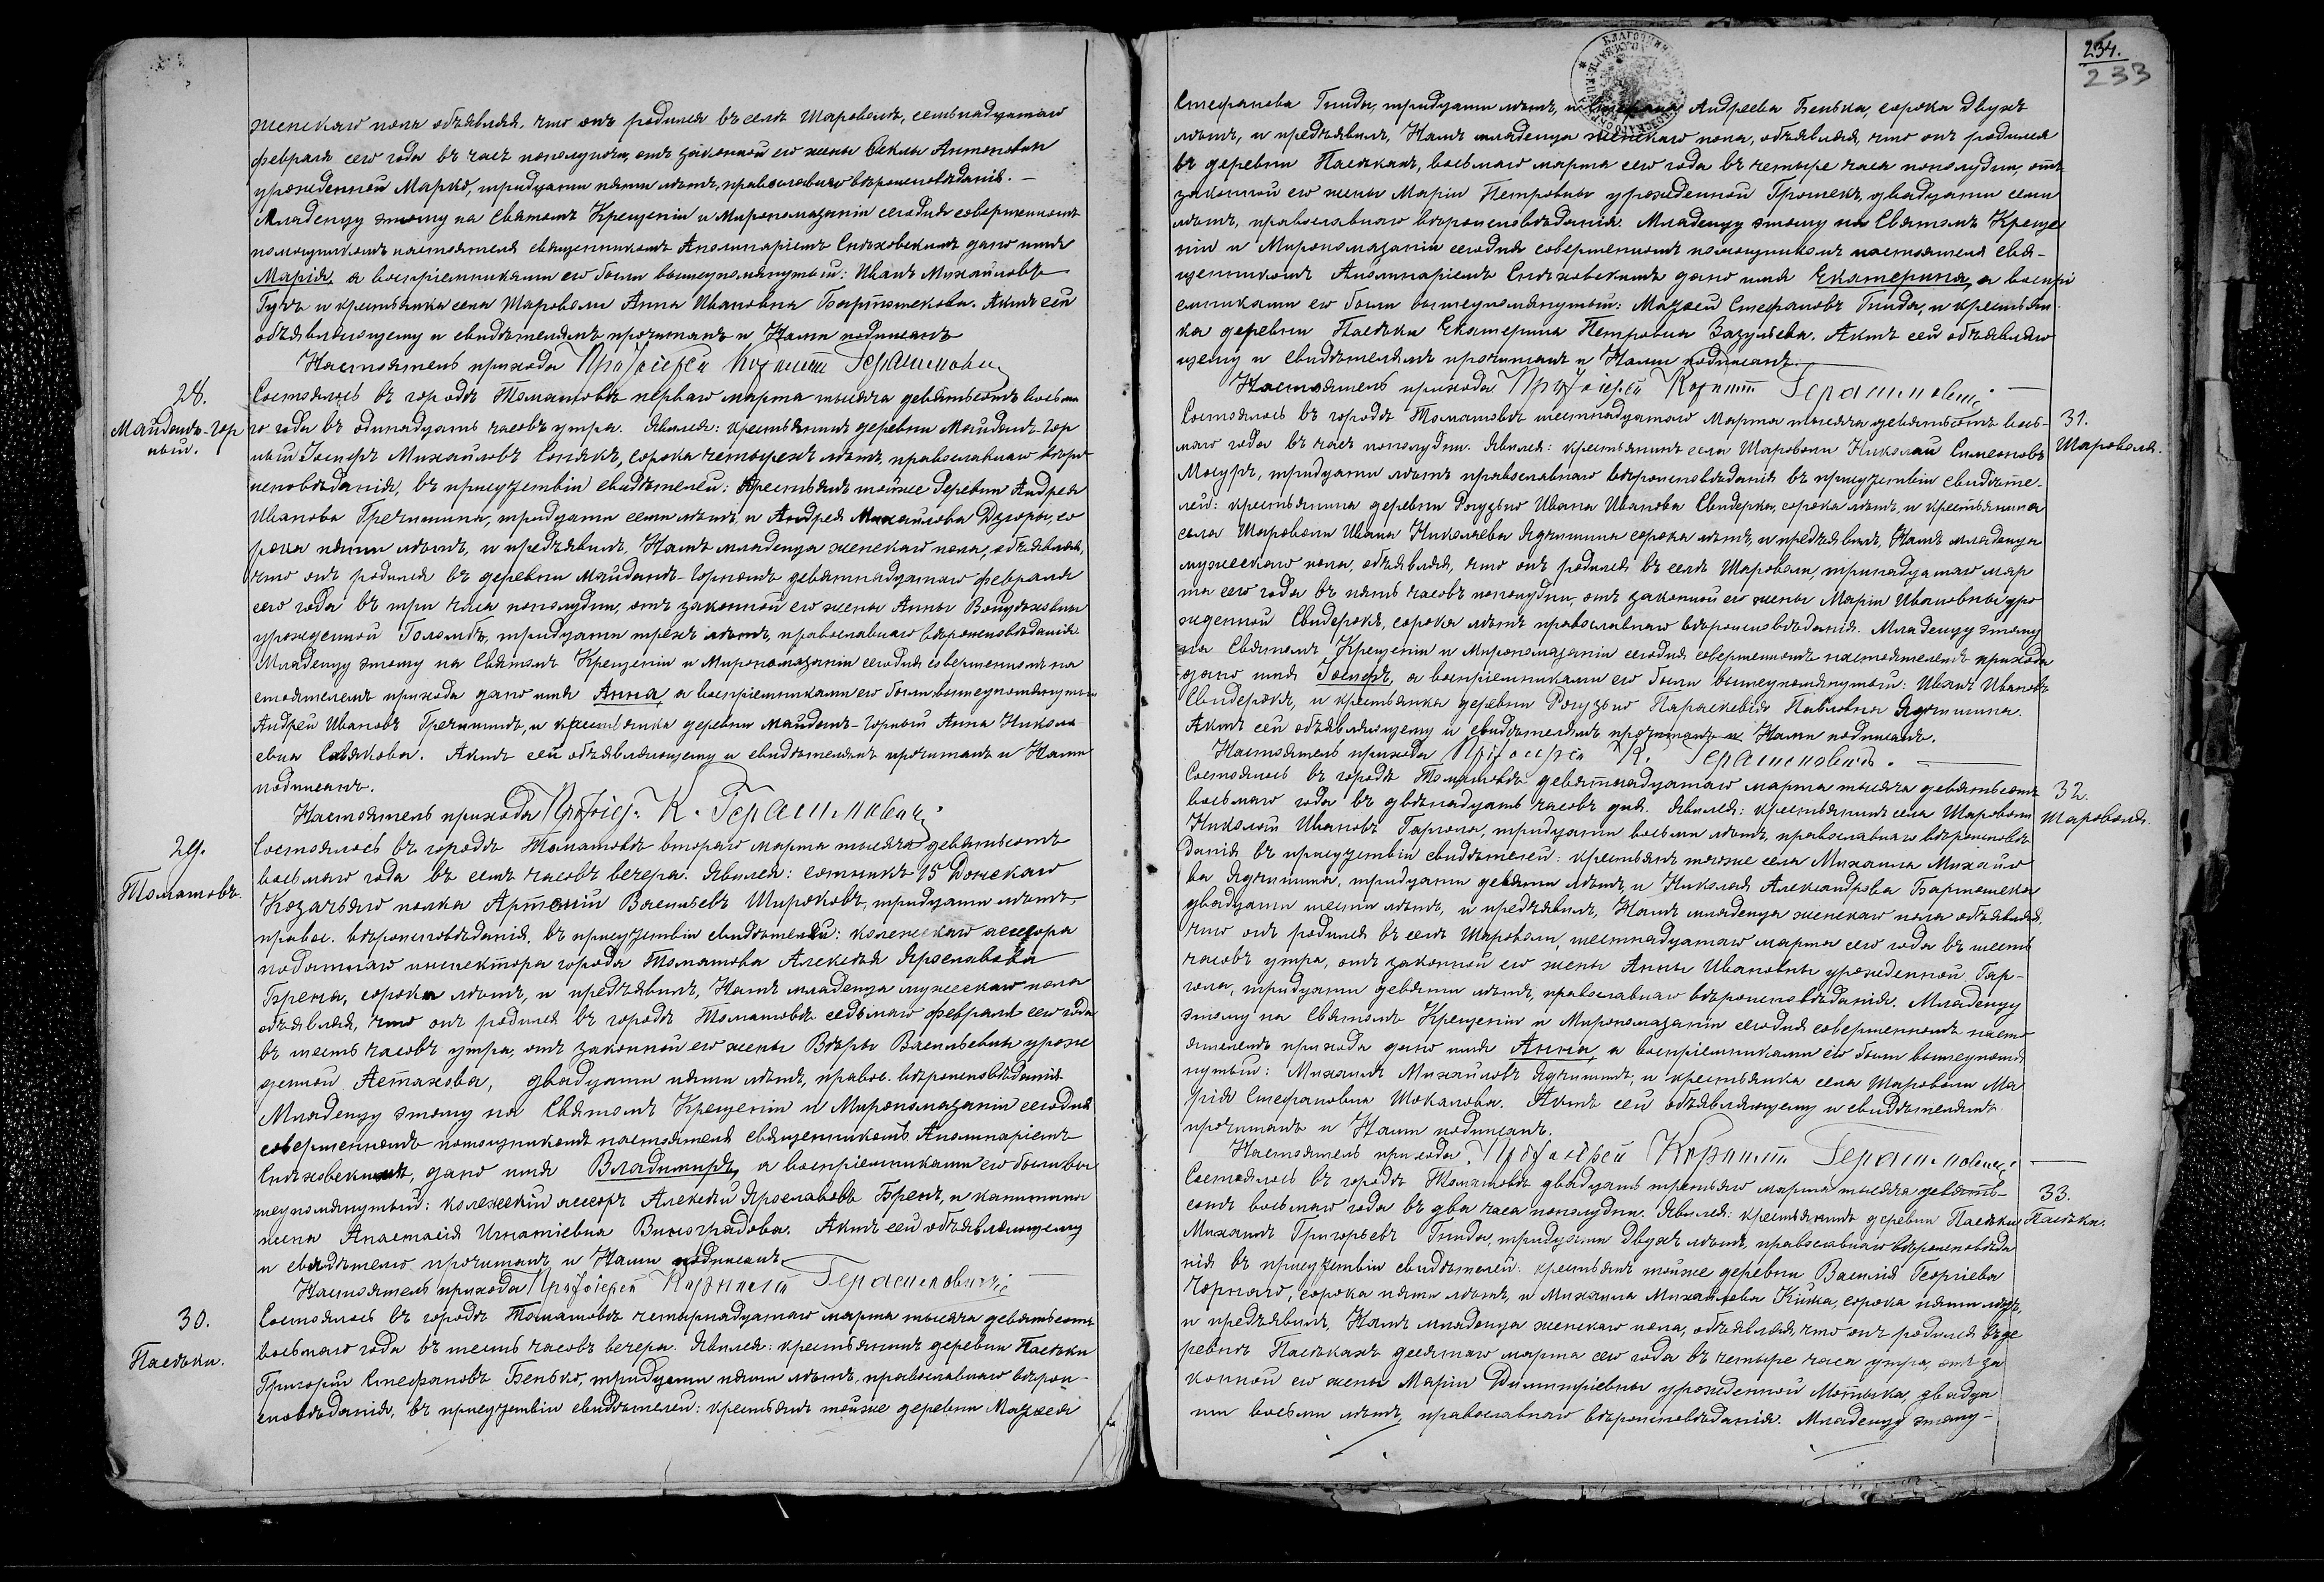 женскаго пола объявляя, что онъ родился въ селѣ Шароволѣ, семьнадцатаго
февраля сего года въ часъ пополуночи, отъ законной его жены Феклы Антоновны
урожденной Марко, тридцати пяти лѣтъ, православнаго вѣроисповѣданія. —
Младенцу этому на Святомъ Крещеніи и Миропомазаніи сегодня совершенномъ
помощникомъ настоятеля священникомъ Аполинаріемъ Снѣховскимъ дано имя
Марія, а воспріемниками его были вышеупомянутый: Иванъ Михайловъ
Гузъ и крестьянка села Шароволи Анна Ивановна Бартошекова. Актъ сей
объявляющему и свидѣтелямъ прочитанъ и Нами подписанъ
Настоятель прихода Протоіерей Корнилій Герасимовичъ
28.
Майданъ-Гор
ный.
Состоялось въ городѣ Томашовѣ перваго марта тысяча девятьсотъ восьма
го года въ одинадцать часовъ утра. Явился: крестьянинъ деревни Майданъ-Гор
ный Іосифъ Михайловъ Сонякъ, сорока четырехъ лѣтъ, православнаго вѣро
исповѣданія, въ присутствіи свидѣтелей: крестьянъ тойже деревни Андрея
Иванова Гречишина, тридцати семи лѣтъ, и Андрея Михайлова Дзюры, со
рока пяти лѣтъ, и предъявилъ Намъ младенца женскаго пола, объявляя,
что онъ родился въ деревни Майданъ-Горномъ девятнадцатаго февраля
сего года въ три часа пополудни, отъ законной его жены Анны Войцѣховны
урожденной Голомбъ, тридцати трехъ лѣтъ, православнаго вѣроисповѣданія.
Младенцу этому на Святомъ Крещеніи и Миропомазаніи сегодня совершенномъ на
стоятелемъ прихода дано имя Анна, а воспріемниками его были вышеупомянутый
Андрей Ивановъ Гречишинъ, и крестьянка деревни Майданъ-Горный Анна Никола
евна Савякова. Актъ сей объявляющему и свидѣтелямъ прочитанъ и Нами
подписанъ.
Настоятель прихода Протоіер. К. Герасимовичъ
29.
Томашовъ.
Состоялось въ городѣ Томашовѣ втораго марта тысяча девятьсотъ
восьмаго года въ семь часовъ вечера. Явился: сотникъ 15 Донскаго
Козачьяго полка Артемій Васильевъ Широковъ, тридцати лѣтъ,
правос. вѣроисповѣданія, въ присутствіи свидѣтелей: колежскаго асесора
податнаго инспектора города Томашова Алексѣя Ярославова
Брена, сорока лѣтъ, и предъявилъ Намъ младенца мужескаго пола
объявляя, что онъ родился въ городѣ Томашовѣ седьмаго февраля сего года
въ шесть часовъ утра, отъ законной его жены Вѣры Васильевны урож
денной Астахова, двадцати пяти лѣтъ, правос. вѣроисповѣданія
Младенцу этому на Святомъ Крещеніи и Миропомазаніи сегодня
совершенномъ помощникомъ настоятеля священникомъ Аполинаріемъ
Снѣховскимъ, дано имя Владиміръ, а воспріемниками его были вы
шеупомянутый: колежскій асесоръ Алексѣй Ярославовъ Бренъ, и капитана
жена Анастасія Игнатіевна Виноградова. Актъ сей объявляющему
и свидѣтелю прочитанъ и Нами подписанъ
Настоятель прихода Протоіерей Корнилій Герасимовичъ
30.
Пасѣки.
Состоялось въ городѣ Томашовѣ четырнадцатаго марта тысяча девятьсотъ
восьмаго года въ шесть часовъ вечера. Явился: крестьянинъ деревни Пасѣки
Григорій Стефановъ Бенько, тридцати пяти лѣтъ, православнаго вѣрои-
сповѣданія, въ присутствіи свидѣтелей: крестьянъ тойже деревни Мазѣея
254.
233
Стефанова Гнида, тридцати лѣтъ, и Стефана Андреева Бенька, сорока двухъ
лѣтъ, и предъявилъ Намъ младенца женскаго пола, объявляя, что онъ родился
въ деревни Пасѣкахъ, восьмаго марта сего года въ четыре часа пополудни, отъ
законной его жены Маріи Петровны урожденной Громекъ, двадцати семи
лѣтъ, православнаго вѣроисповѣданія. Младенцу этому на Святомъ Креще
ніи и Миропомазаніи сегодня совершенномъ помощникомъ настоятеля свя-
щенникомъ Аполинаріемъ Снѣховскимъ дано имя Екатерина, а воспрі
емниками его были вышеупомянутый: Мазѣй Стефановъ Гнида, и крестьян
ка деревни Пасѣки Екатерина Петровна Зазулева. Актъ сей объявляю
щему и свидѣтелямъ прочитанъ и Нами подписанъ.
Настоятель прихода Протоіерей Корнилій Герасимовичъ
31.
Шароволя.
Состоялось въ городѣ Томашовѣ шестнадцатаго Марта тысяча девятьсотъ вось-
маго года въ часъ пополудни. Явился: крестьянинъ села Шароволи Николай Симеоновъ
Мосуръ, тридцати лѣтъ православнаго вѣроисповѣданія въ присутствіи свидѣте-
лей: крестьянина деревни Рогузьно Ивана Иванова Свидерка, сорока лѣтъ, и крестьянина
села Шароволи Ивана Николаева Ядчишина сорока лѣтъ, и предъявилъ Намъ младенца
мужескаго пола, объявляя, что онъ родился въ селѣ Шароволи, тринадцатаго мар
та сего года въ пять часовъ пополудни, отъ законной его жены Маріи Ивановны уро
жденной Свидерокъ, сорока лѣтъ православнаго вѣроисповѣданія. Младенцу этому
на Святомъ Крещеніи и Миропомазаніи сегодня совершенномъ настоятелемъ прихода
дано имя Іосифъ, а воспріемниками его были вышеупомянутый: Иванъ Ивановъ
Свидерокъ, и крестьянка деревни Рогузьно Параскевія Павловна Ядчишина.
Актъ сей объявляющему и свидѣтелямъ прочитанъ и Нами подписанъ.
Настоятель прихода Протоіерей К. Герасимовичъ.
32.
Шароволя.
Состоялось въ городѣ Томашовѣ девятнадцатаго марта тысяча девятьсотъ
восьмаго года въ двѣнадцать часовъ дня. Явился: крестьянинъ села Шароволи
Николай Ивановъ Гаргола, тридцати восьми лѣтъ, православнаго вѣроисповѣ
данія въ присутствіи свидѣтелей: крестьянъ тогоже села Михаила Михайло
ва Ядчишина, тридцати девяти лѣтъ, и Николая Александрова Бартошека
двадцати шести лѣтъ, и предъявилъ Намъ младенца женскаго пола объявляя,
что онъ родился въ селѣ Шароволи, шестнадцатаго марта сего года въ шесть
часовъ утра, отъ законной его жены Анны Ивановны урожденной Гар-
гола, тридцати девяти лѣтъ, православнаго вѣроисповѣданія. Младенцу
этому на Святомъ Крещеніи и Миропомазаніи сегодня совершенномъ насто
ятелемъ прихода дано имя Анна, а воспріемниками его были вышеупомя
нутый: Михаилъ Михайловъ Ядчишинъ, и крестьянка села Шароволи Ма
рія Стефановна Шокалова. Актъ сей объявляющему и свидѣтелямъ
прочитанъ и Нами подписанъ.
Настоятель прихода Протоіерей Корнилій Герасимовичъ
33.
Пасѣки.
Состоялось въ городѣ Томашовѣ двадцать третьяго марта тысяча девять-
сотъ восьмаго года въ два часа пополудни. Явился: крестьянинъ деревни Пасѣки
Михаилъ Григорьевъ Гнида, тридцати двухъ лѣтъ, православнаго вѣроисповѣда
нія въ присутствіи свидѣтелей: крестьянъ тойже деревни Василія Георгіева
Чорнаго, сорока пяти лѣтъ, и Михаила Михайлова Кишка, сорока пяти лѣтъ,
и предъявилъ Намъ младенца женскаго пола, объявляя, что онъ родился въ де
ревнѣ Пасѣкахъ десятаго марта сего года въ четыре часа утра, отъ за
конной его жены Маріи Димитріевны урожденной Мотыка, двадца
ти восьми лѣтъ, православнаго вѣроисповѣданія. Младенцу этому-